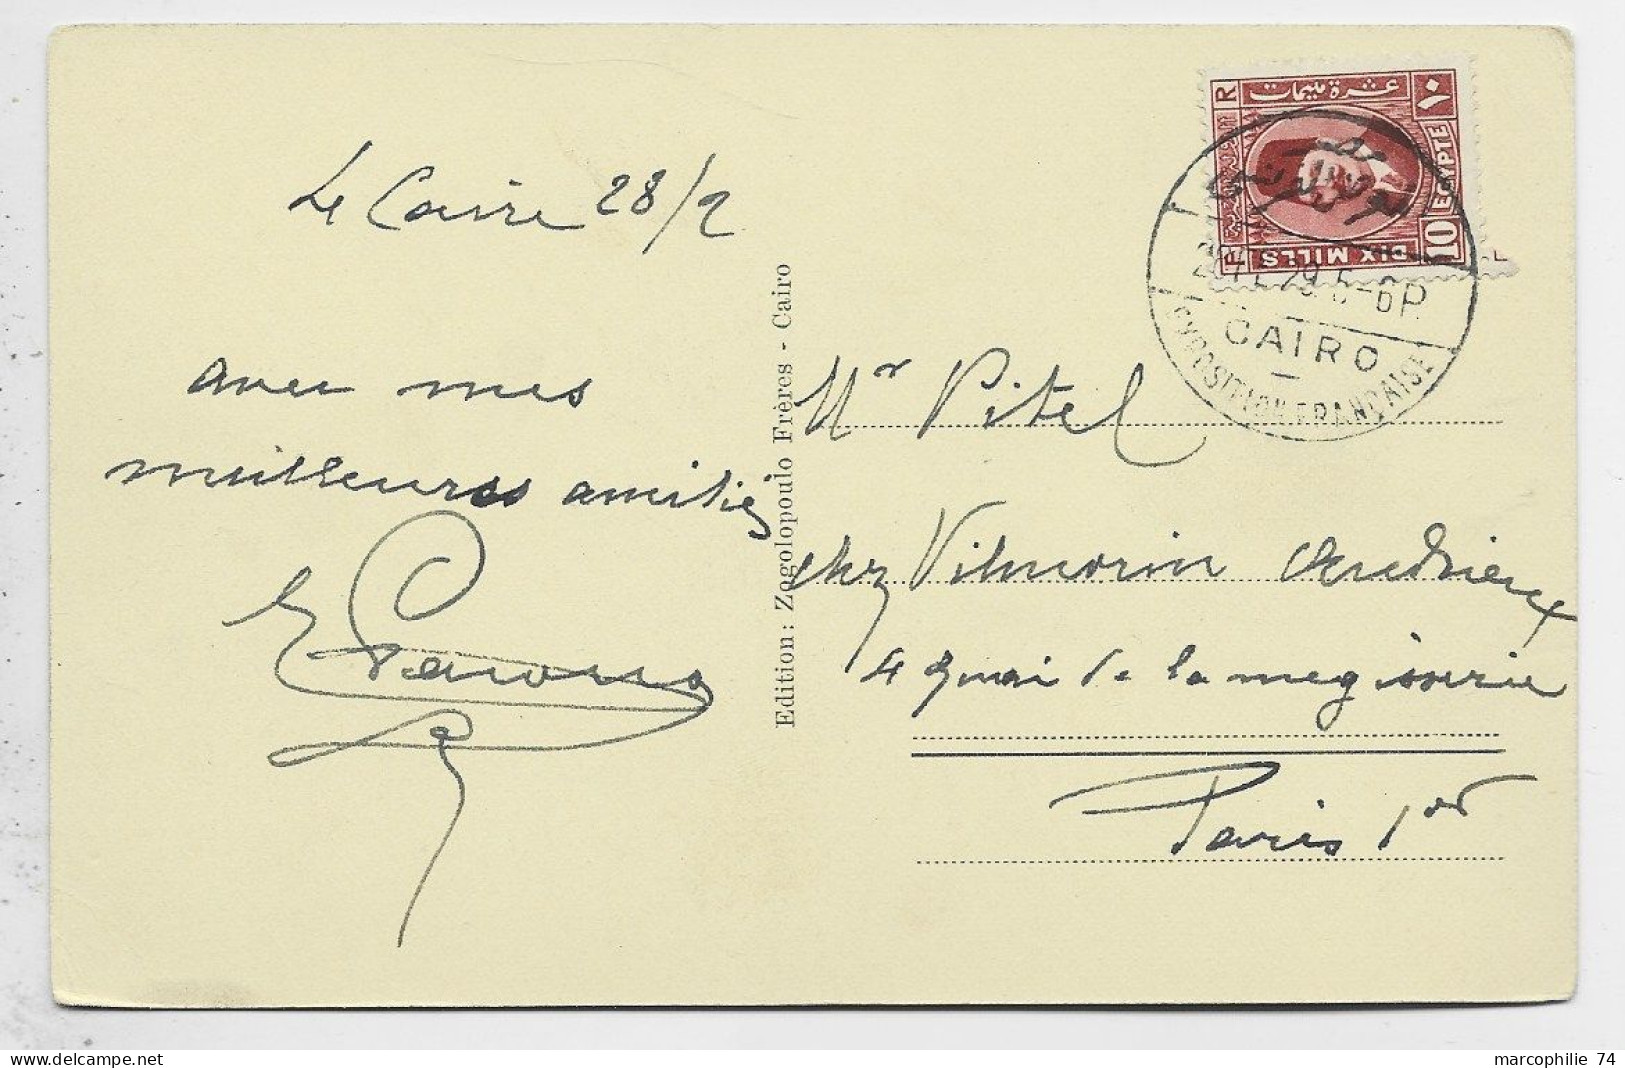 Le Caire 28/2
avec mes
meilleures amitiés
Edition: Zogolopoulo Frères - Cairo
عشرة مليمات
١٠
R
EGYPTE
10
DIX MILLS
29 5-6P
CAIRO
EXPOSITION FRANÇAISE
Mr Pitel
chez Vilmorin Andrieux
4 Quai de la megisserie
Paris 1er
marcophilie 74